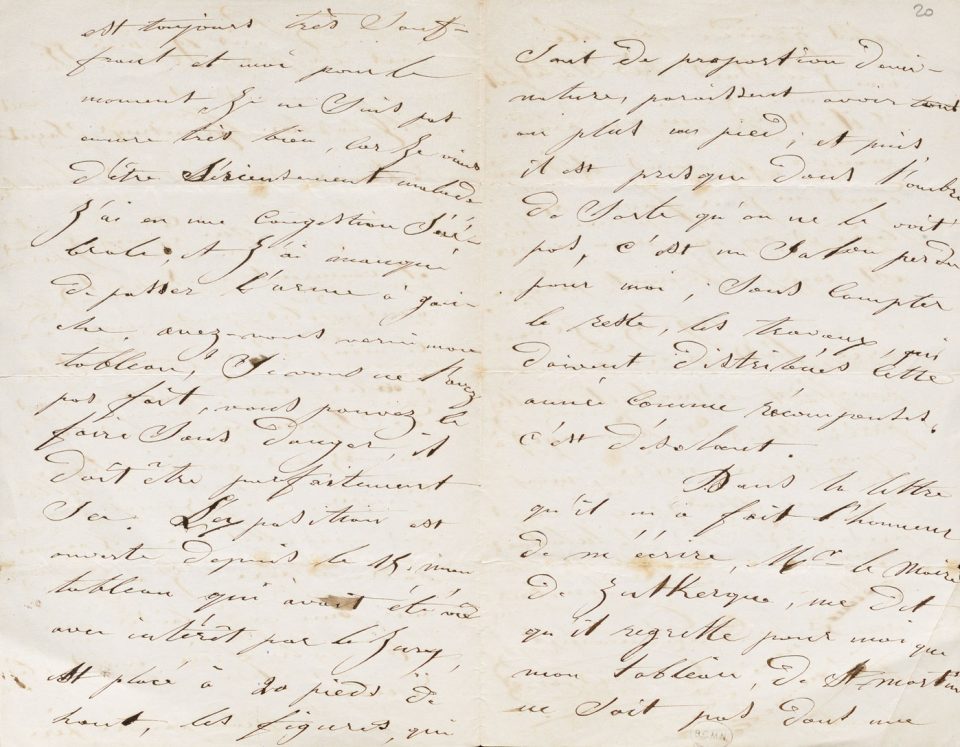 est toujours très Souf-
frant et moi pour le
moment, Je ne Suis pas
encore très bien, car Je viens
d'être Sérieusement malade
J'ai eu une congestion Céré-
brale et J'ai manqué
de passer l'arme à gau-
che. avez-vous verni mon
tableau, Si vous ne l'avez
pas fait, vous pouvez le
faire Sans danger, il
doit être parfaitement
Sec. L'exposition est
ouverte depuis le 15. mon
tableau qui avait été vu
avec intérêt par le Jury,
est placé à 20 pieds de
haut, les figures, qui
20
Sont de proportion demi-
nature, paraissent avoir tout
au plus un pied; et puis
il est presque dans l'ombre
de Sorte qu'on ne le voit
pas, c'est un Salon perdu
pour moi, Sans compter
le reste, les travaux, qui
doivent distribués cette
année Comme récompenses,
c'est désolant.
Dans la lettre
qu'il m'a fait l'honneur
de m'écrire, Mr le Maire
de Zutkerque, me dit
qu'il regrette pour moi que
mon tableau, de St. martin
ne Soit pas dans une